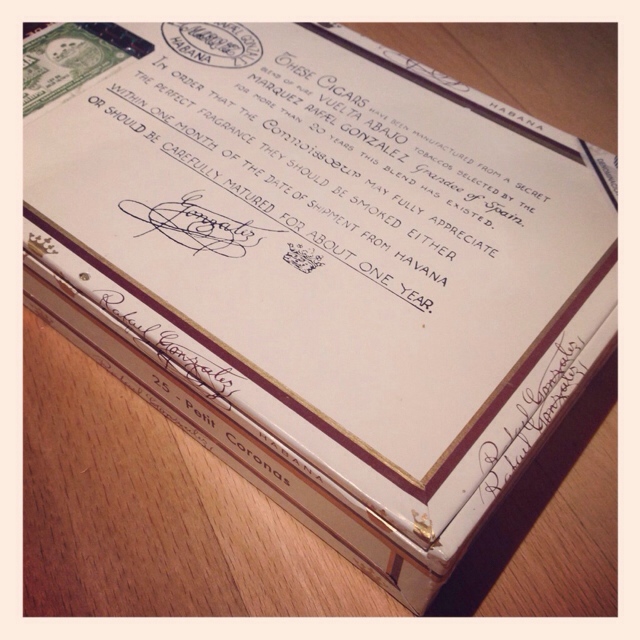 RAFAEL GONZALEZ
Marques
HABANA
THESE CIGARS HAVE BEEN MANUFACTURED FROM A SECRET
BLEND OF PURE VUELTA ABAJO TOBACCOS SELECTED BY THE
MARQUEZ RAFAEL GONZALEZ Grandee of Spain.
FOR MORE THAN 20 YEARS THIS BLEND HAS EXISTED.
IN ORDER THAT THE Connoisseur MAY FULLY APPRECIATE
THE PERFECT FRAGRANCE THEY SHOULD BE SMOKED EITHER
WITHIN ONE MONTH OF THE DATE OF SHIPMENT FROM HAVANA
OR SHOULD BE CAREFULLY MATURED FOR ABOUT ONE YEAR.
Gonzalez
HABANA
Rafael Gonzalez
HABANA
25 - Petit Coronas
Rafael Gonzalez
Rafael Gonzalez
Rafael Gonzalez